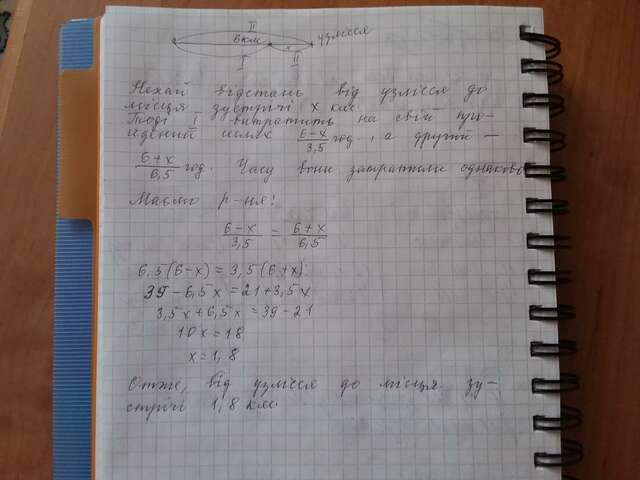 II
6 км
x
узлісся
I
II
Нехай відстань від узлісся до
місця зустрічі x км.
Тоді I витратить на свій прой-
дений шлях \frac{6-x}{3,5} год, а другий –
\frac{6+x}{6,5} год. Часу вони затратили однаково
Маємо р-ня:
\frac{6-x}{3,5} = \frac{6+x}{6,5}
6,5(6-x) = 3,5(6+x)
39-6,5x = 21+3,5x
3,5x+6,5x = 39-21
10x = 18
x = 1,8
Отже, від узлісся до місця зу-
стрічі 1,8 км.